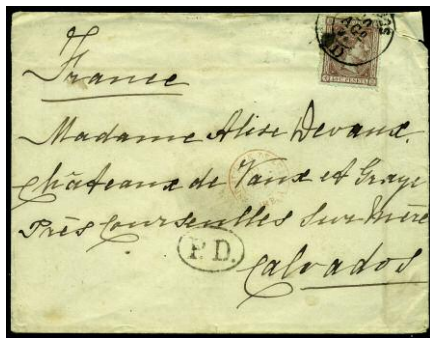 AGO
France
Madame Alise Devaux.
Châteaux de Vaux et Graye
Près Courseulles Sur Mère
P.D.
Calvados